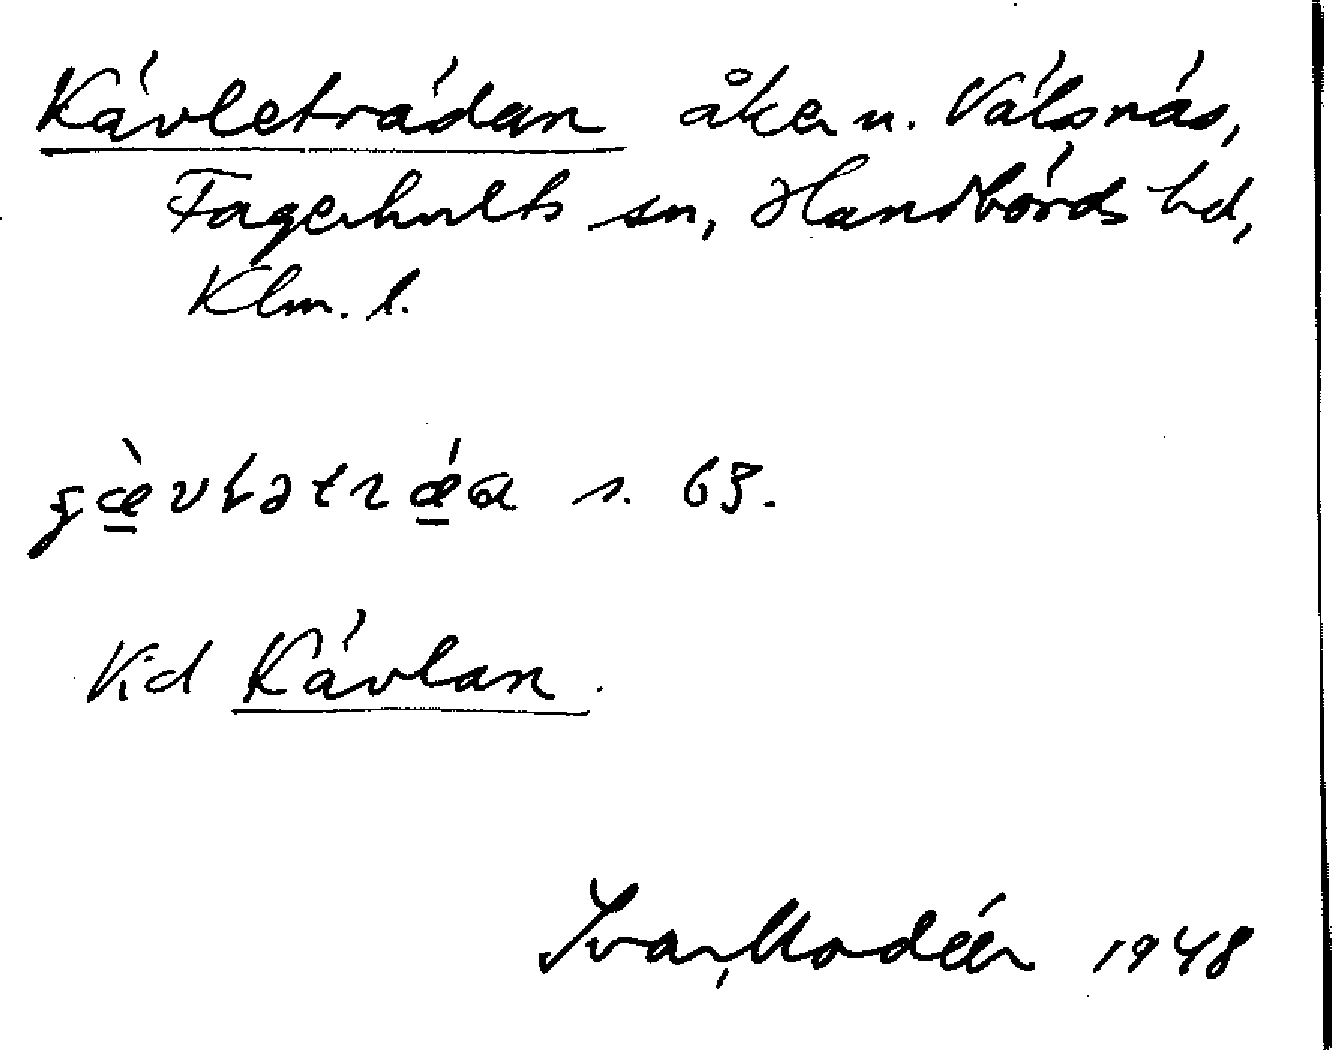 Kävleträdan åker u. Välsnäs,
Fagerhults sn, Handbörds hd,
Klm. l.
s. 63.
Vid Kävlan.
Ivar Modéer 1948